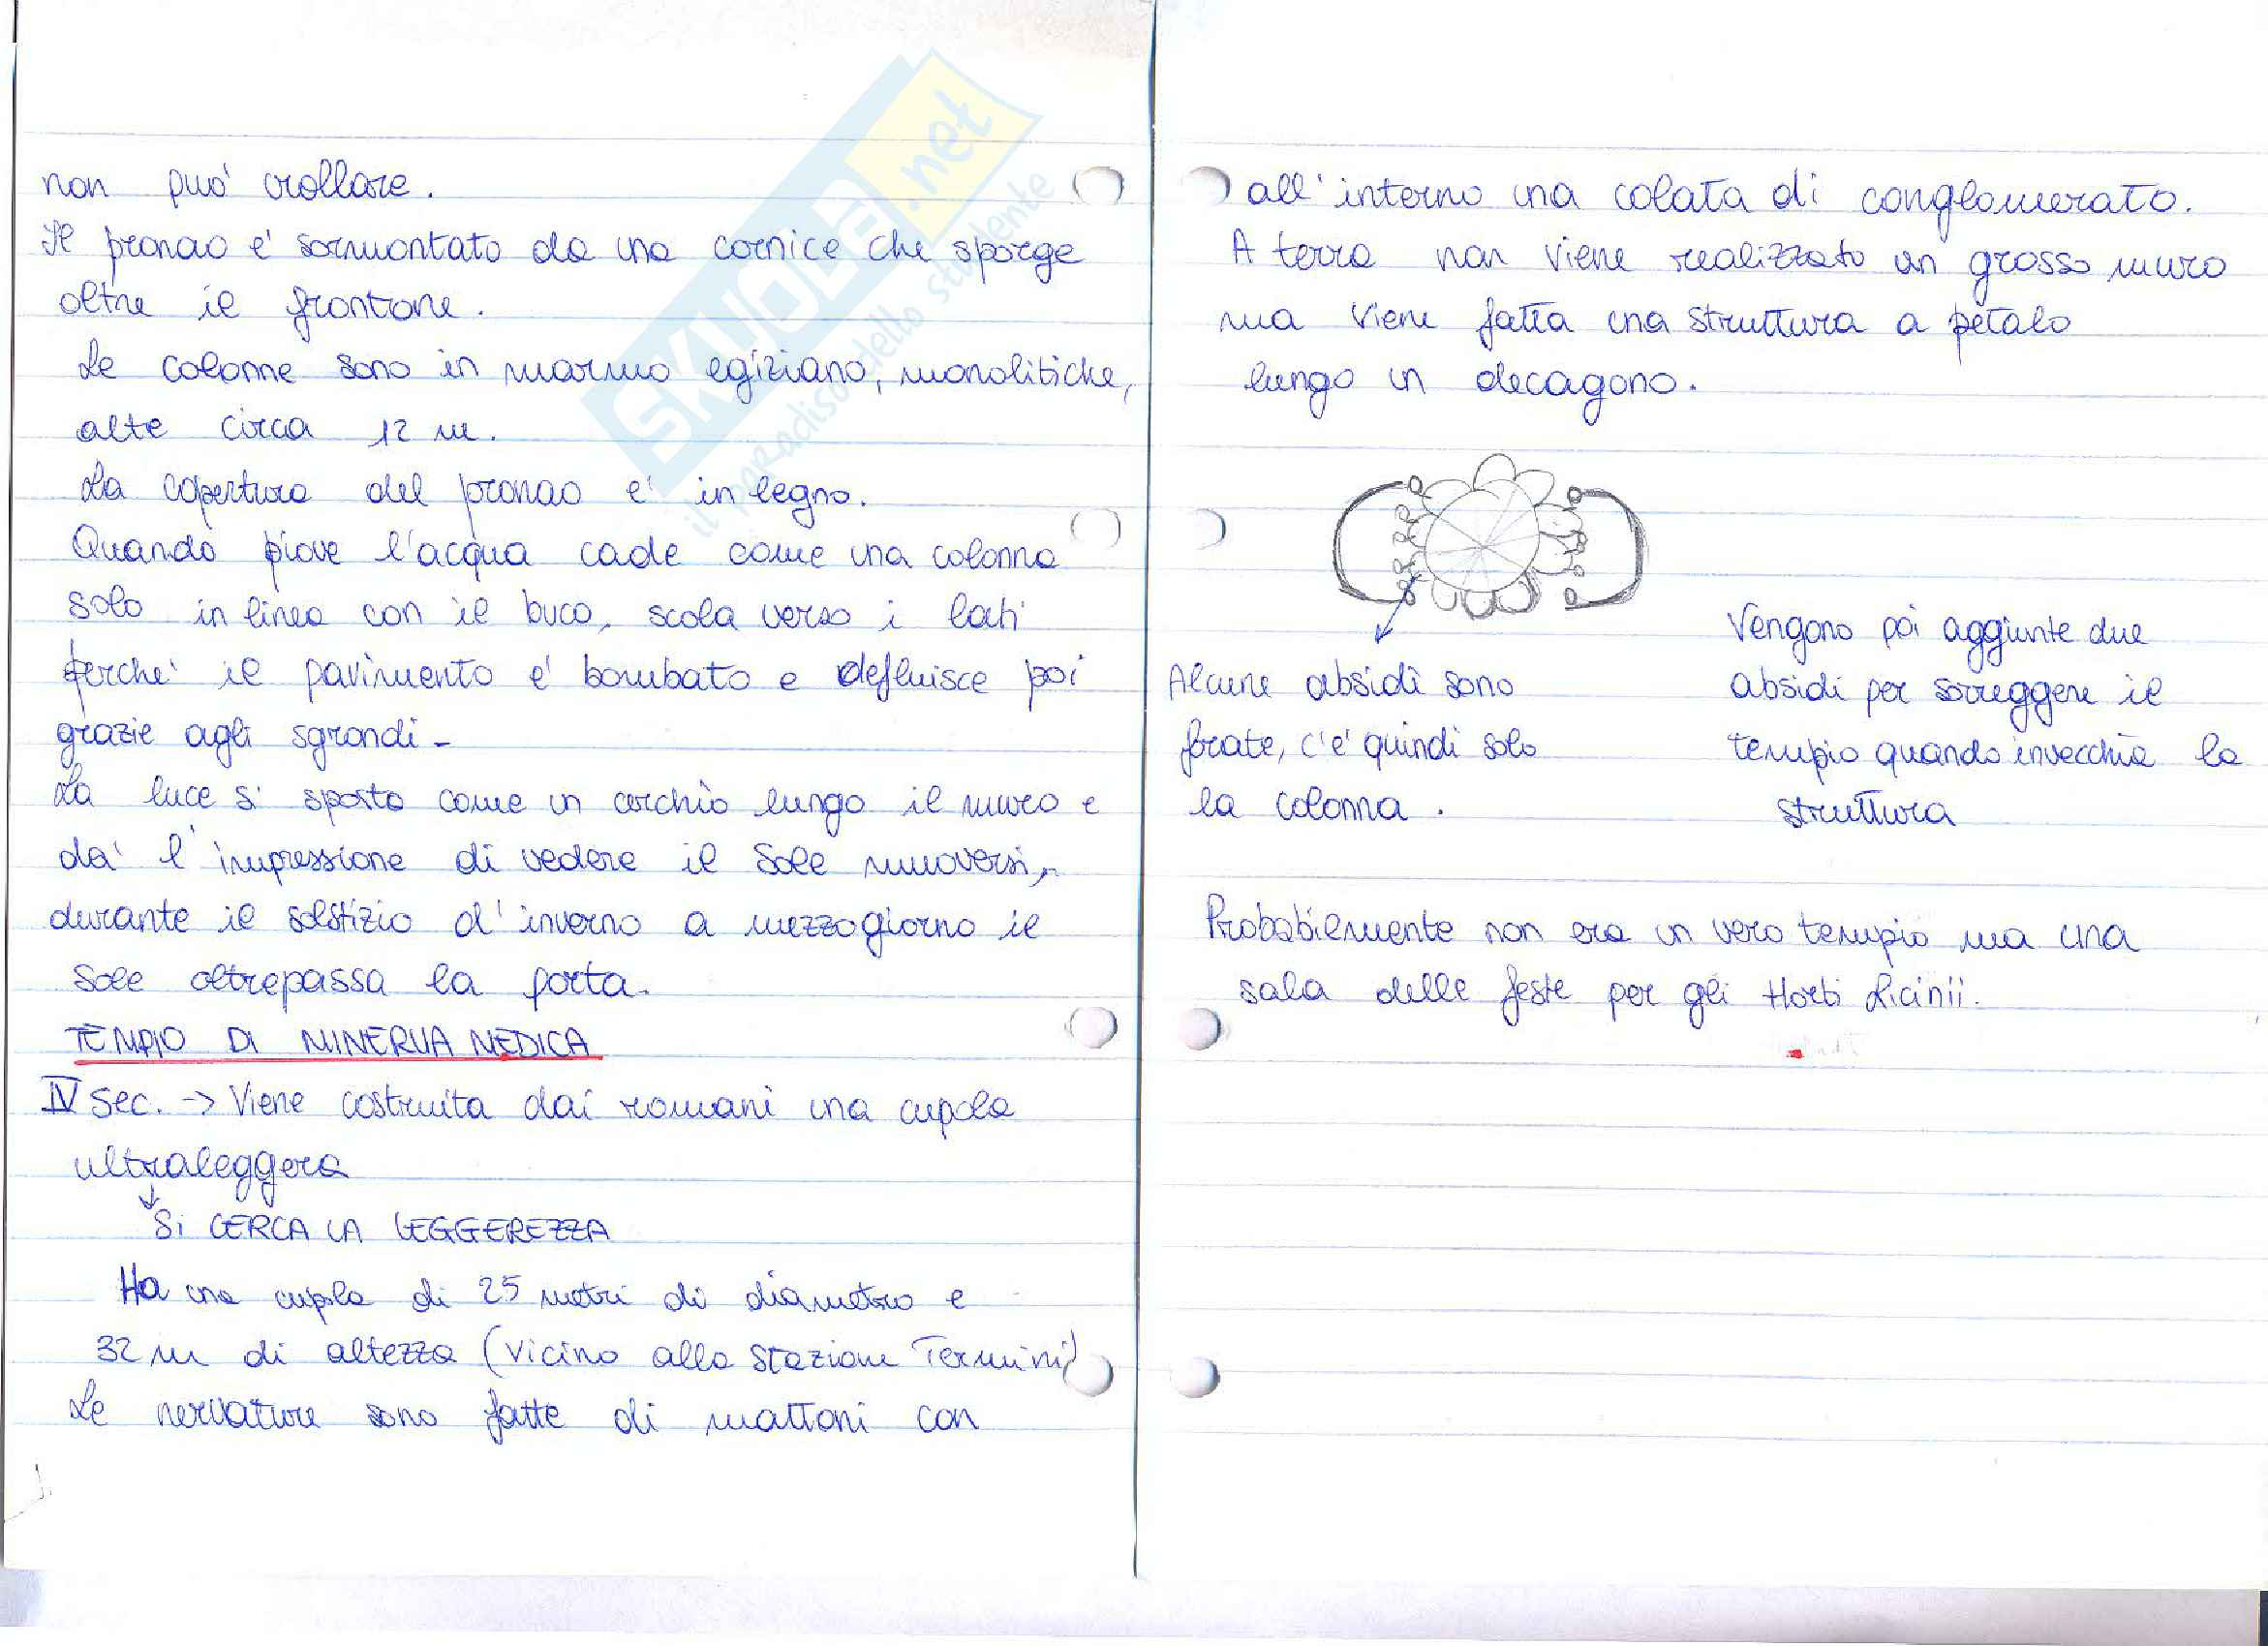 non può crollare.
Il pronao e' sormontato da una cornice che sporge
oltre il frontone.
Le colonne sono in marmo egiziano, monolitiche,
alte circa 12 m.
La copertura del pronao e' in legno.
Quando piove l'acqua cade come una colonna
solo in linea con il buco, scola verso i lati
perche' il pavimento e' bombato e defluisce poi
grazie agli sgrondi-
La luce si sposta come un cerchio lungo il muro e
da' l'impressione di vedere il sole muoversi,
durante il solstizio d'inverno a mezzogiorno il
sole oltrepassa la porta.
TEMPIO DI MINERVA MEDICA
IV sec. -> Viene costruita dai romani una cupola
ultraleggera
↓
Si CERCA LA LEGGEREZZA
Ha una cupola di 25 metri di diametro e
32 m di altezza (vicino alla stazione Termini)
Le nervature sono fatte di mattoni con
all'interno una colata di conglomerato.
A terra non viene realizzato un grosso muro
ma viene fatta una struttura a petalo
lungo un decagono.
Alcune absidi sono
forate, c'e' quindi solo
la colonna.
Vengono poi aggiunte due
absidi per sorreggere il
tempio quando invecchia la
struttura
Probabilmente non era un vero tempio ma una
sala delle feste per gli Horti Licinii.
SKUOLA.net
il paradiso dello studente